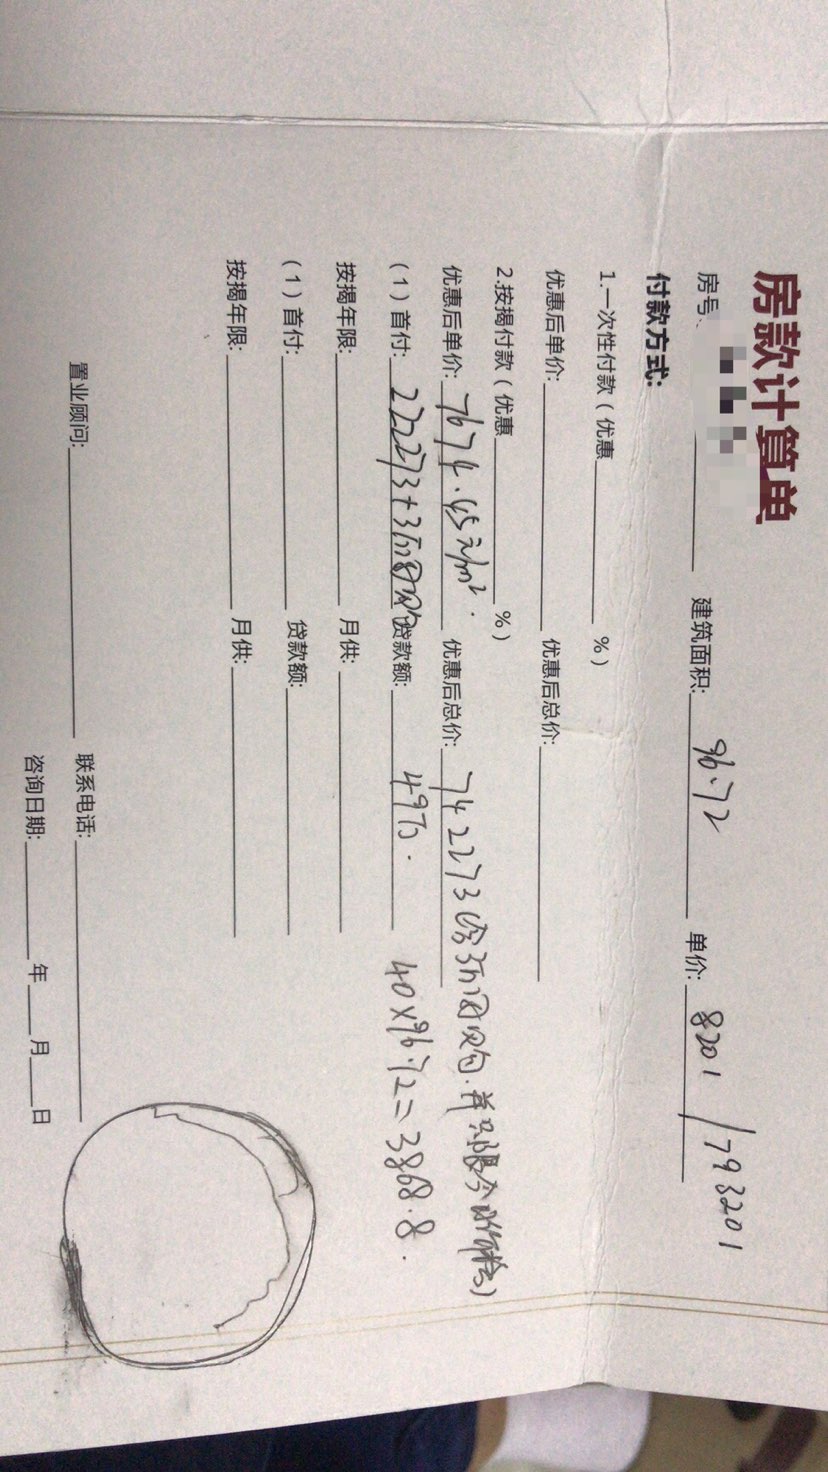 房款计算单
房号: 建筑面积: 96.72 单价: 8201 / 793201
付款方式:
1.一次性付款(优惠 %)
优惠后单价: 优惠后总价:
2.按揭付款(优惠 %)
优惠后单价: 7674.45元/m². 优惠后总价: 742273(含3万团购.并只限今
(1)首付: 222273+3万团购 贷款额: 49万. 40×96.72=3868.8.
按揭年限: 月供:
(1)首付: 贷款额:
按揭年限: 月供:
置业顾问: 联系电话:
咨询日期: 年 月 日